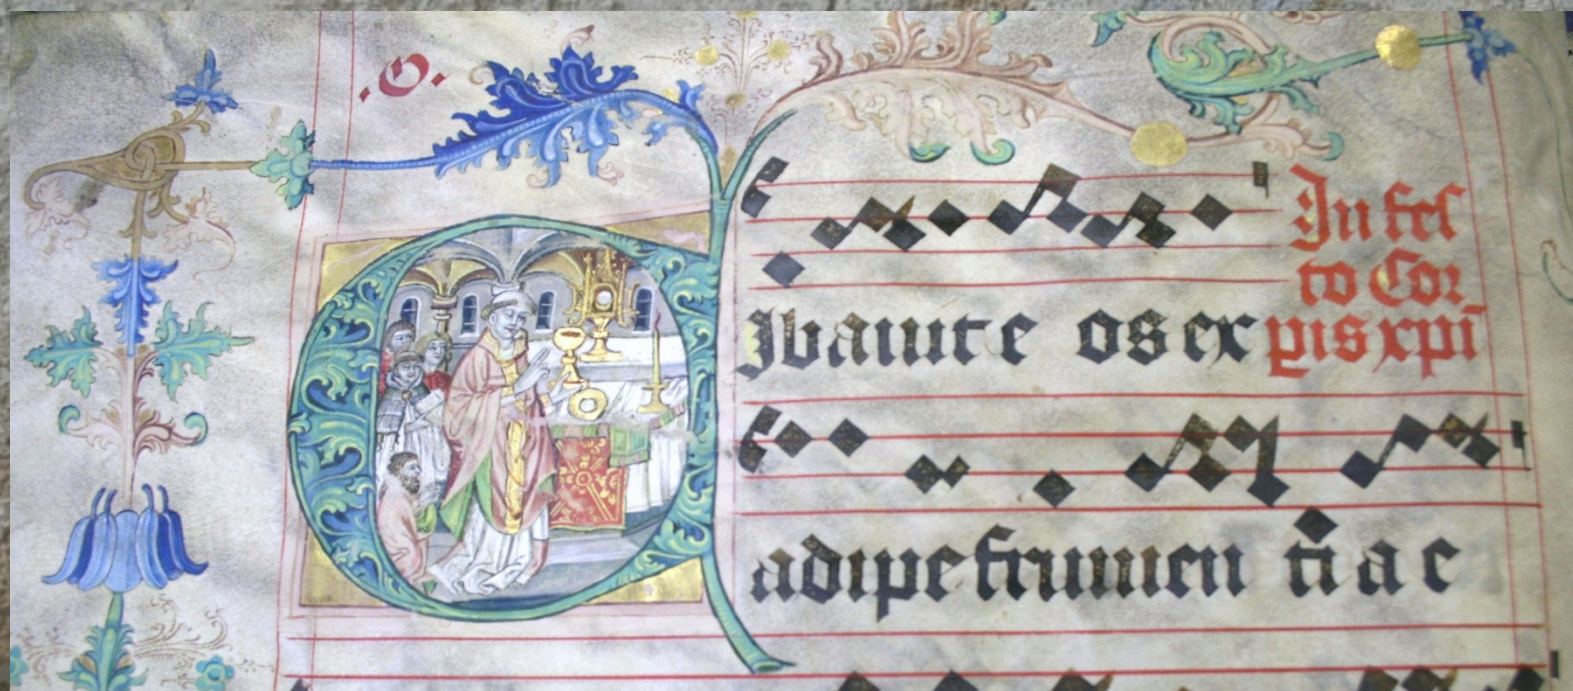 .O.
In fes
to Cor
pis xpi
Cibauit eos ex
adipe frumenti a e